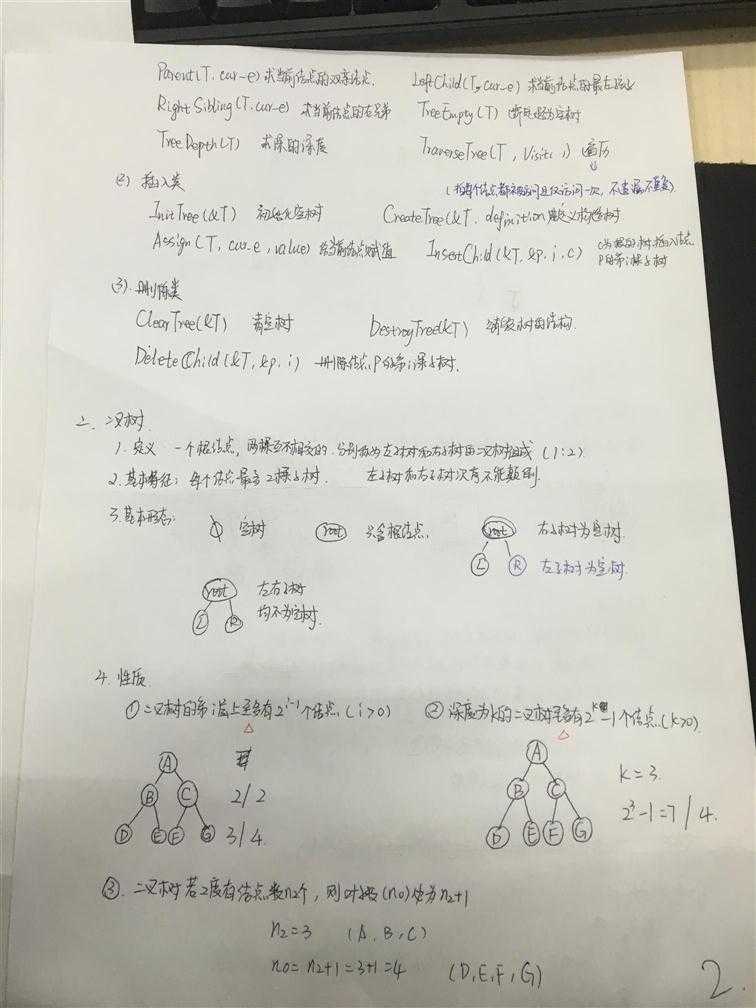 Parent(T, cur-e) 求当前结点的双亲结点. LeftChild(T, cur-e) 求当前结点的最左孩子
RightSibling(T, cur-e) 求当前结点的右兄弟 TreeEmpty(T) 断是否为空树
TreeDepth(T) 求深的深度 TraverseTree(T, Visit( )) 遍历
(指每个结点都被访问且仅访问一次, 不遗漏不重复)
(2) 插入类
InitTree(&T) 初始化空树 CreateTree(&T, definition) 定义构造树
Assign(T, cur-e, value) 给当前结点赋值 InsertChild(&T, &p, i, c) c为根的树,插入结点
P的第i棵子树
(3). 删除类
ClearTree(&T) 清空树 DestroyTree(&T) 消毁树的结构.
DeleteChild(&T, &p, i) 删除结点P的第i课子树.
二、二叉树
1. 定义 一个根结点, 两棵互不相交的.分别称为左子树和右子树的二叉树组成 (1:2)
2. 基本特征: 每个结点最多2棵子树. 左子树和右子树次序不能颠倒.
3. 基本形态: 空树 root 只含根结点. root 右子树为空树.
L R 左子树为空树.
root 左右子树
L R 均不为空树.
4. 性质
① 二叉树的第i层上至多有2^i-1个结点 (i>0) ② 深度为k的二叉树至多有2^k-1个结点 (k>0)
A A
B C 2/2 B C K=3.
D E F G 3/4. D E F G 2^3-1=7/4.
③. 二叉树若2度有结点数n2个, 则叶数(n0)必为n2+1
n2=3 (A, B, C)
n0=n2+1=3+1=4 (D, E, F, G)
2.